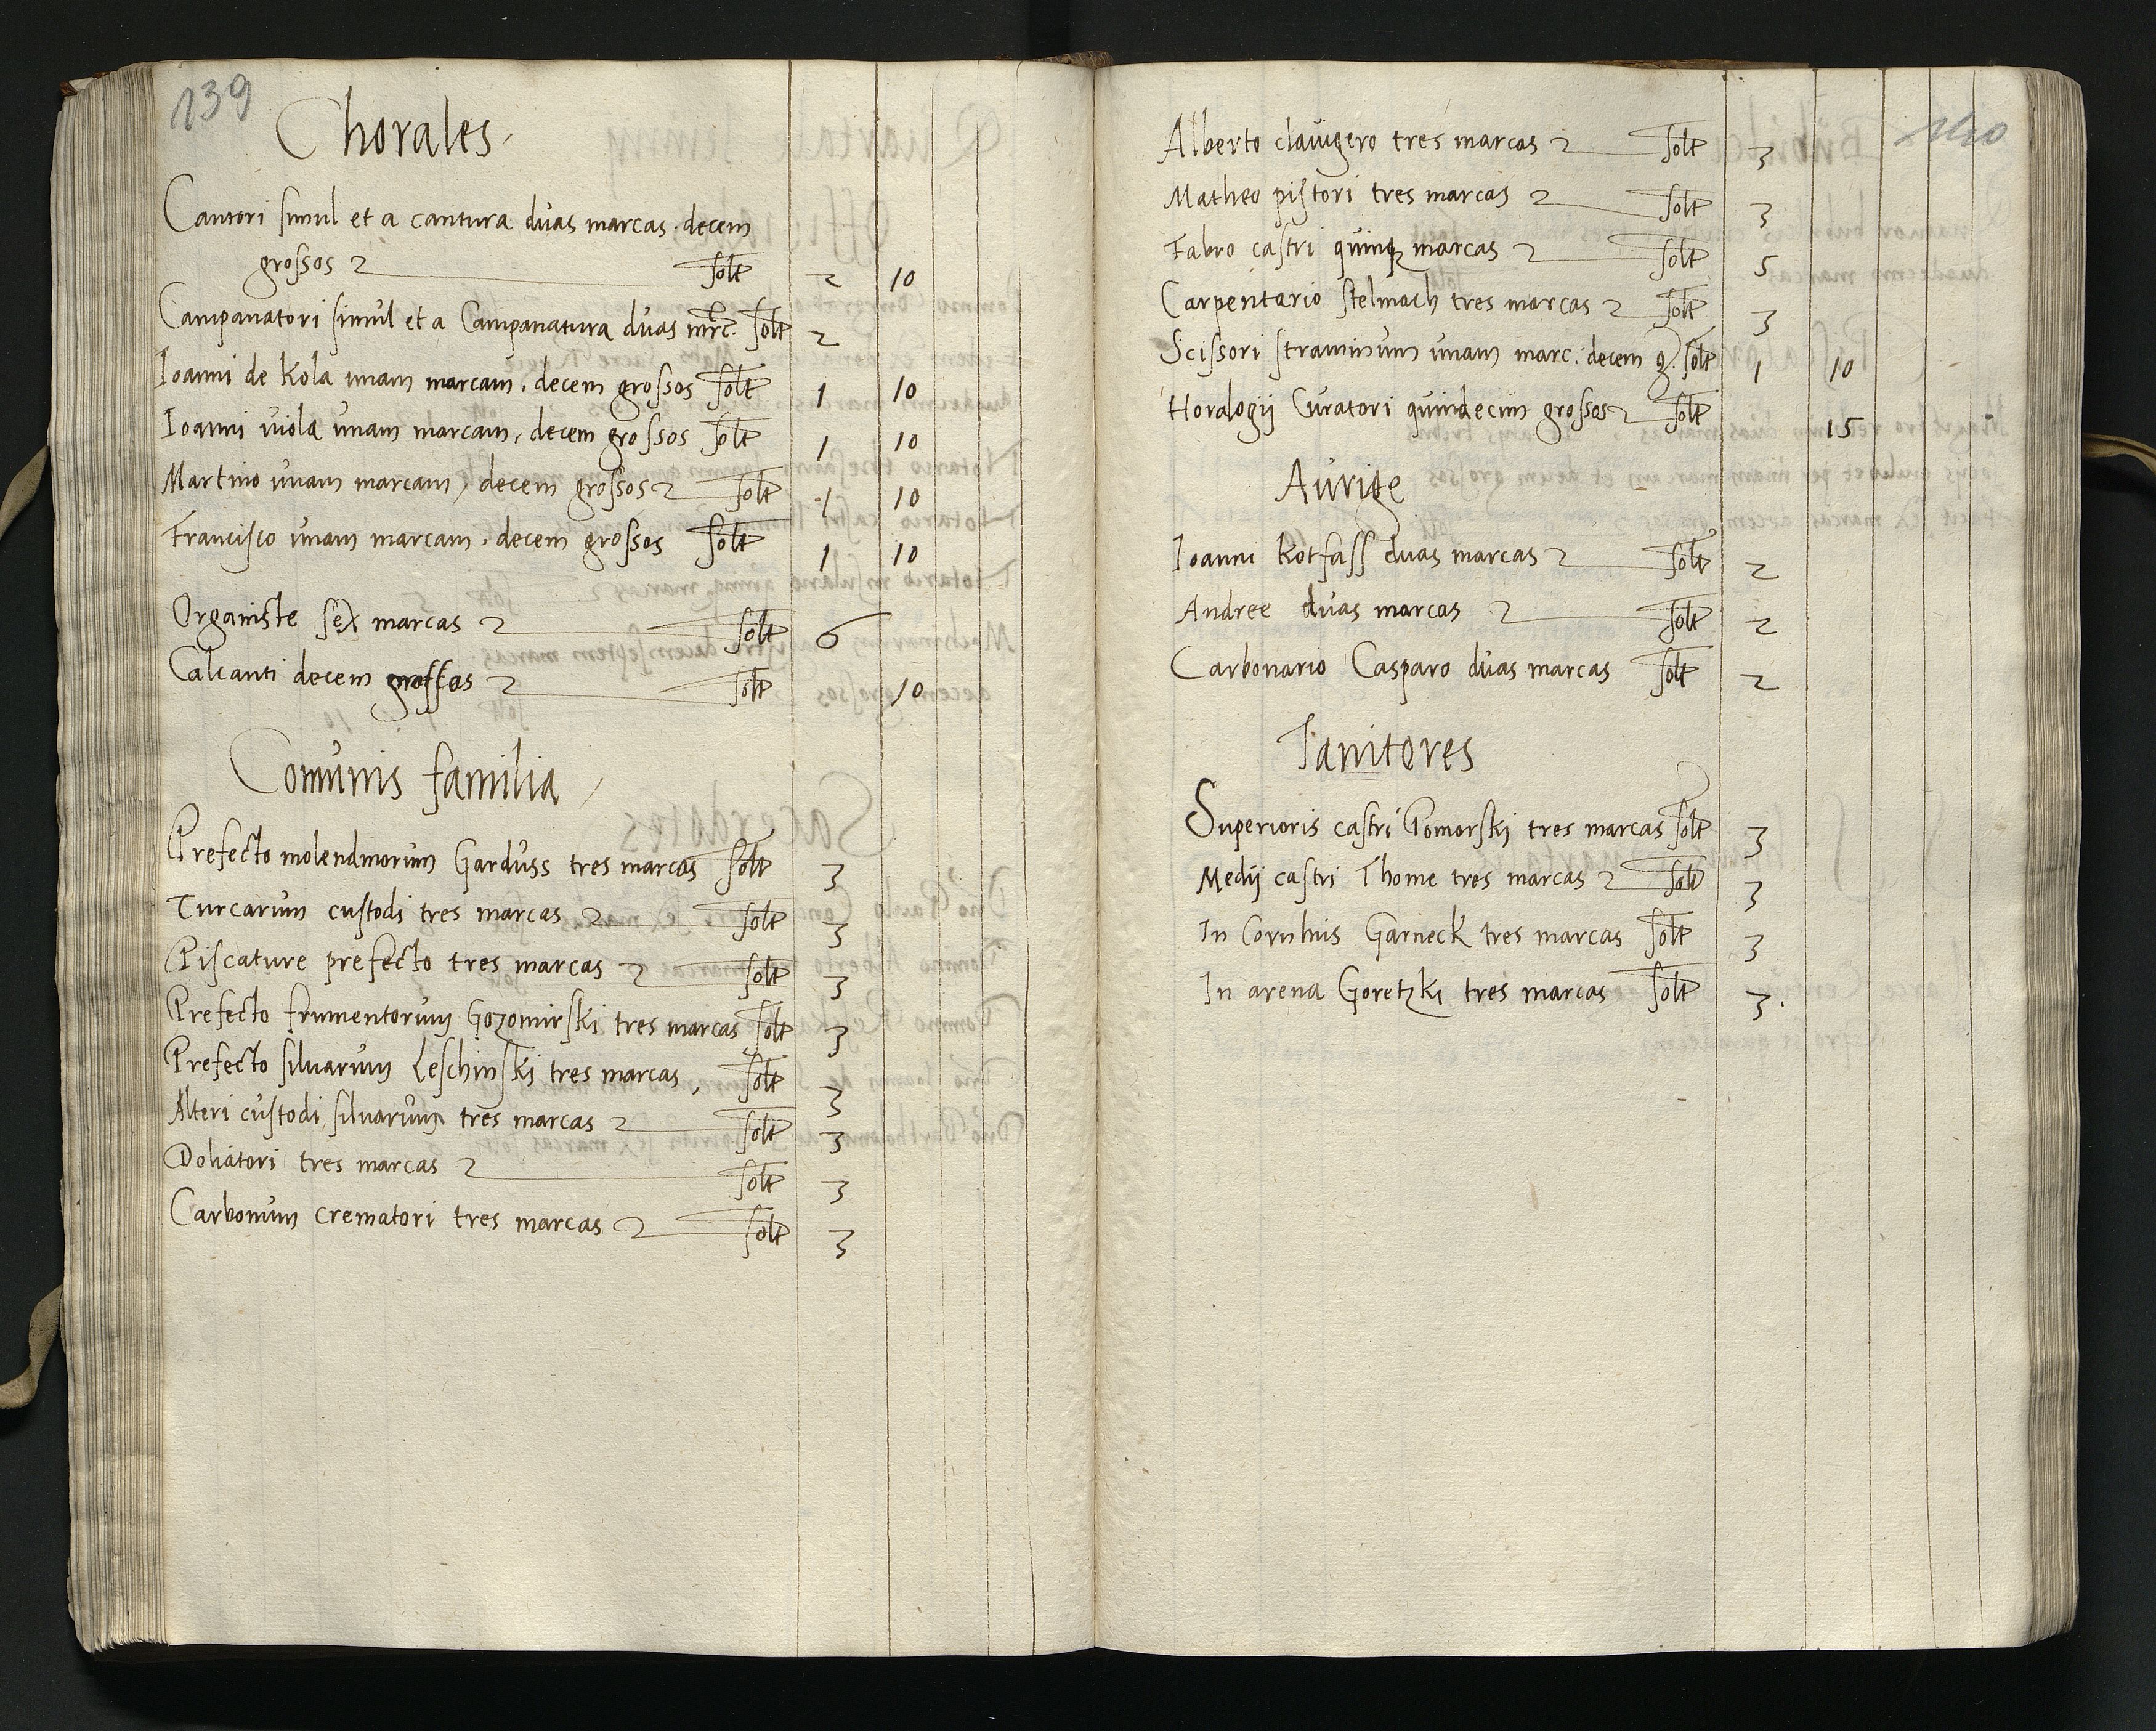 139
Chorales
Cantori simul et a cantura duas marcas. decem
grossos solt 2 10
Campanatori simul et a Campanatura duas mrc. solt 2
Ioanni de Kola unam marcam. decem grossos solt 1 10
Ioanni viola unam marcam, decem grossos solt 1 10
Martino unam marcam, decem grossos solt 1 10
Francisco unam marcam. decem grossos solt 1 10
Organiste sex marcas solt 6
Calcanti decem grossos solt 10
Comunis familia
Prefecto molendinorum Garduss tres marcas solt 3
Turcarum custodi tres marcas solt 3
Piscature prefecto tres marcas solt 3
Prefecto frumentorum Gozomirski tres marcas solt 3
Prefecto silvarum Leschinski tres marcas, solt 3
Alteri custodi silvarum tres marcas solt 3
Doliatori tres marcas solt 3
Carbonum crematori tres marcas solt 3
140
Alberto clavigero tres marcas solt 3
Matheo pistori tres marcas solt 3
Fabro castri quinq marcas solt 5
Carpentario stelmach tres marcas solt 3
Scissori straminum unam marc. decem g. solt 1 10
Horalogij Curatori quindecim grossos solt 15
Aurige
Ioanni Kotfass duas marcas solt 2
Andree duas marcas solt 2
Carbonario Casparo duas marcas solt 2
Ianitores
Superioris castri Pomorski tres marcas solt 3
Medij castri Thome tres marcas solt 3
In Garneck tres marcas solt 3
In arena Goretzki tres marcas solt 3.